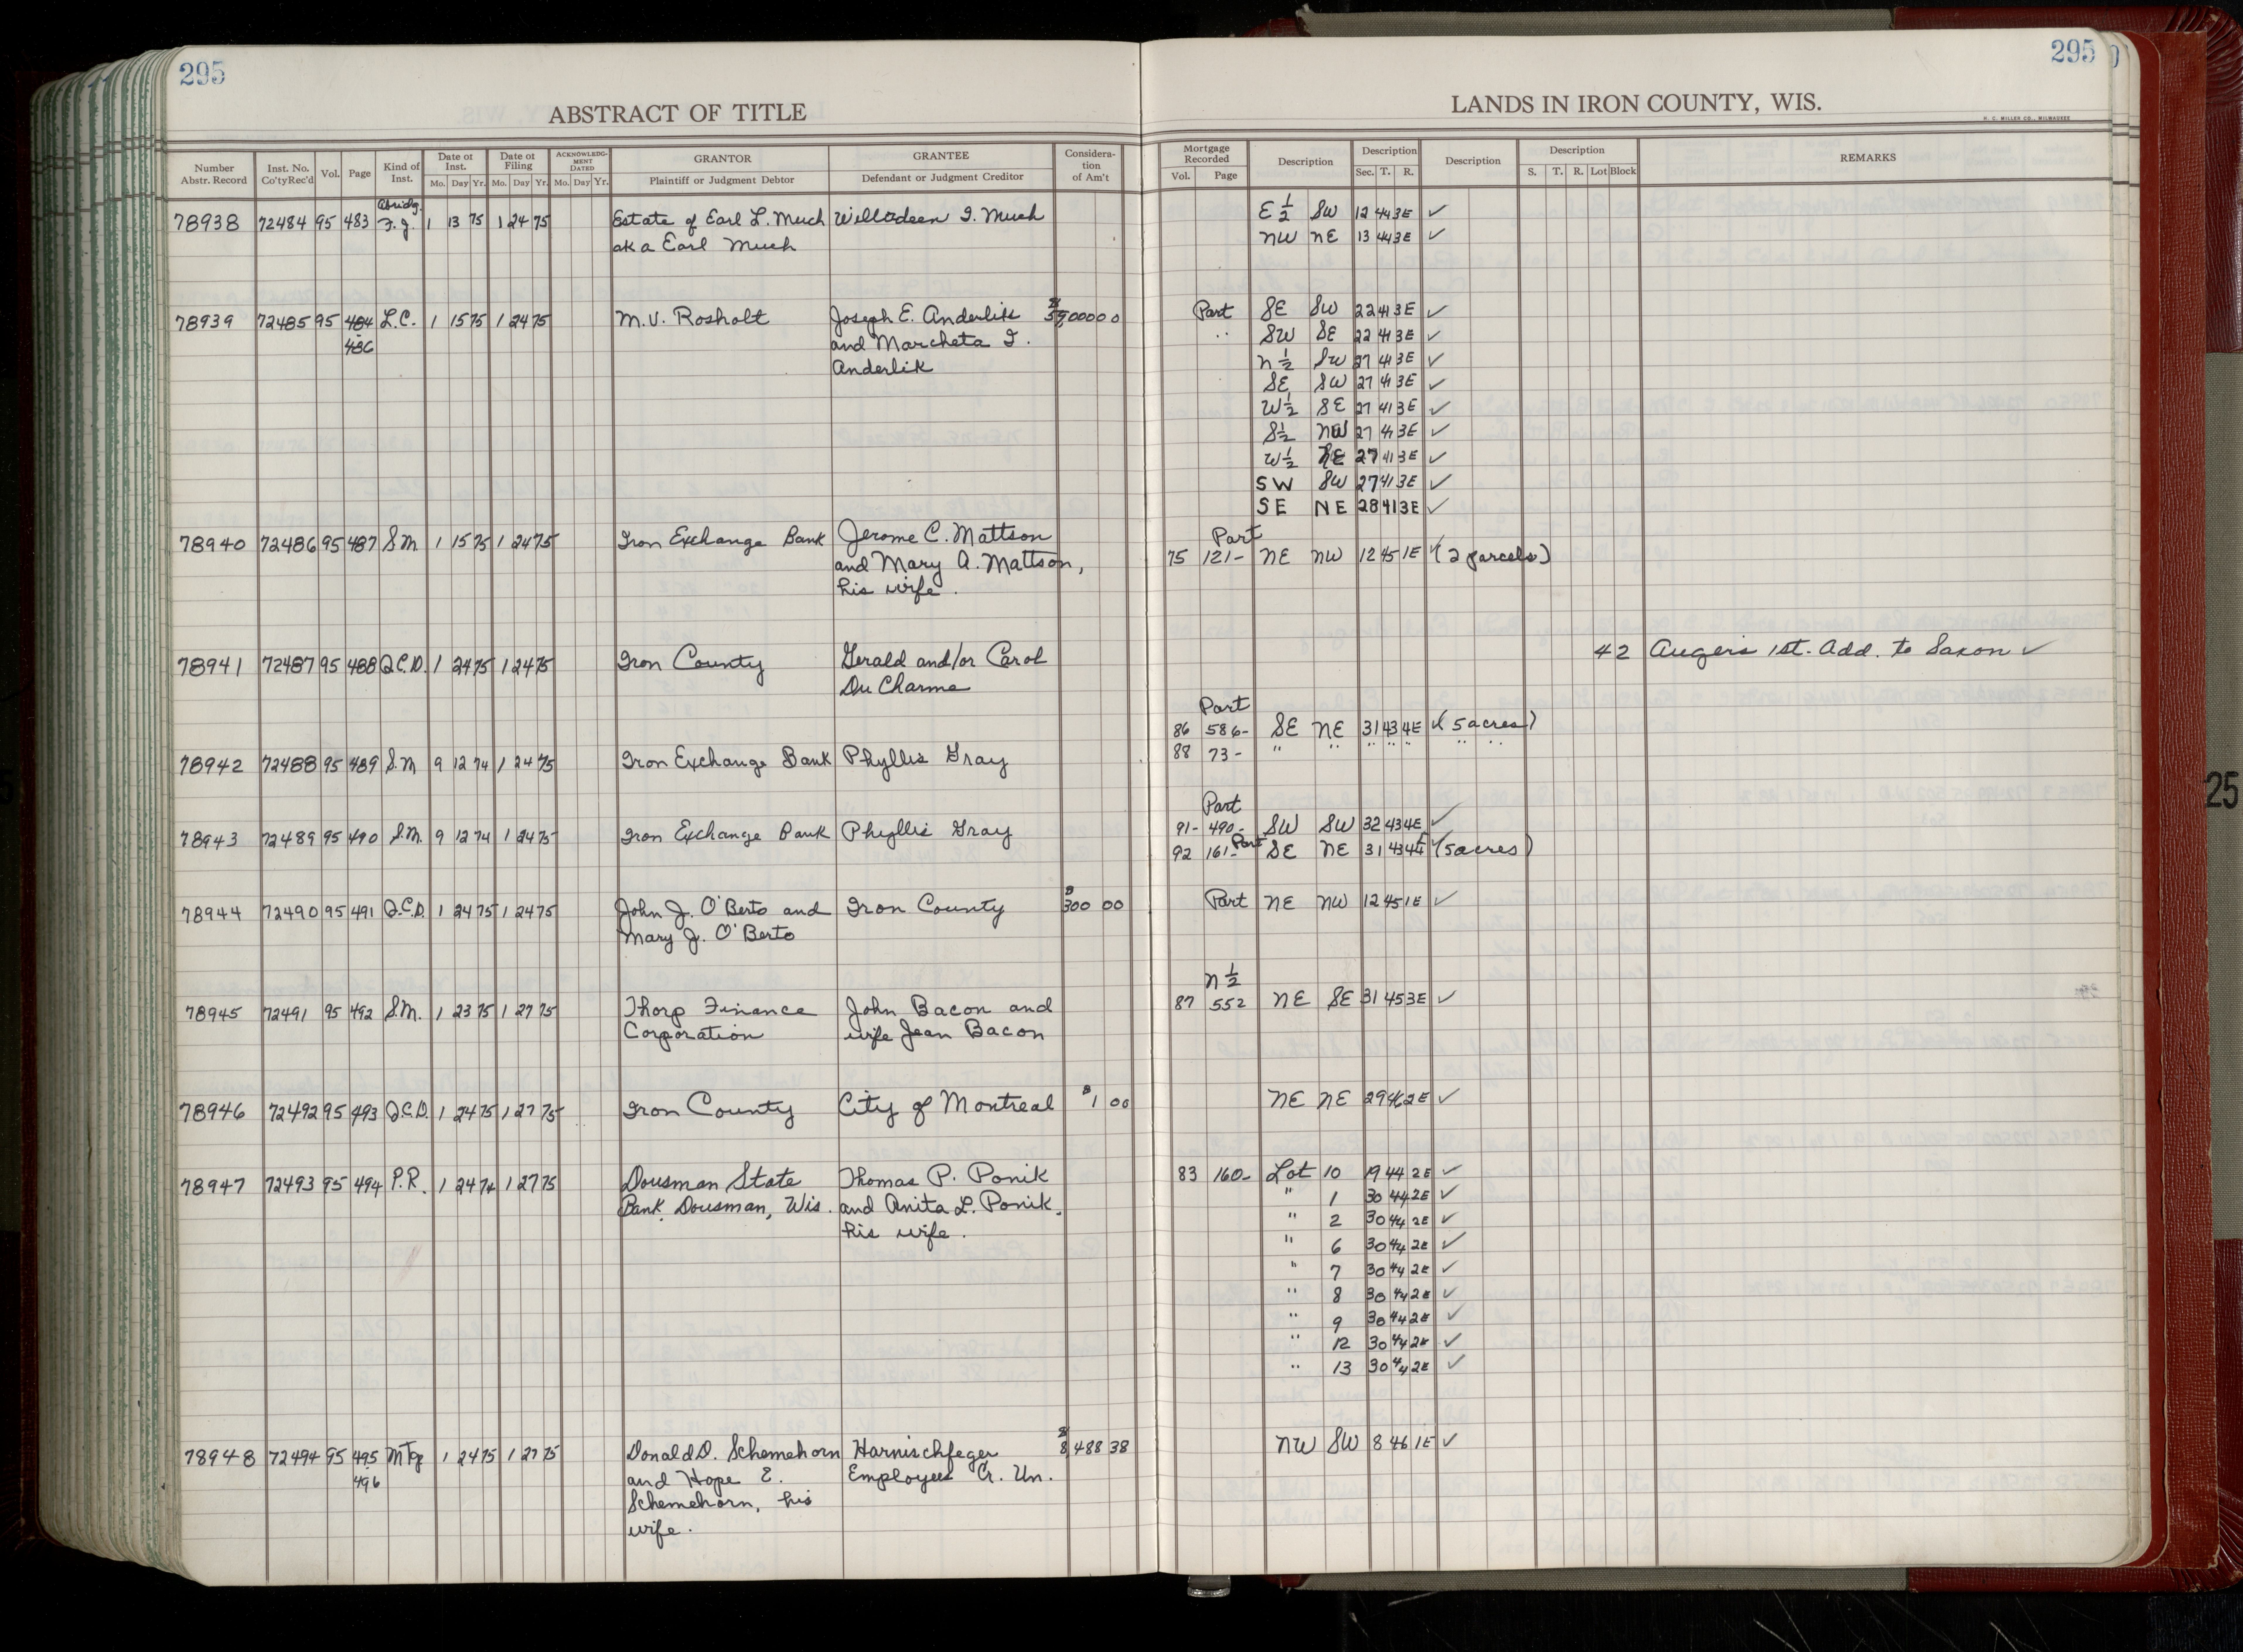 295
295
ABSTRACT OF TITLE
LANDS IN IRON COUNTY, WIS.
H. C. MILLER CO., MILWAUKEE
Number Abstr. Record | Inst. No. Co'ty Rec'd | Vol. | Page | Kind of Inst. | Date of Inst. Mo. Day Yr. | Date of Filing Mo. Day Yr. | ACKNOWLEDGMENT DATED Mo. Day Yr. | GRANTOR Plaintiff or Judgment Debtor | GRANTEE Defendant or Judgment Creditor | Consideration of Am't | Mortgage Recorded Vol. Page | Description | Description Sec. T. R. | Description | Description S. T. R. Lot Block | REMARKS
Abridg.
78938 72484 95 483 F.J. 1 13 75 1 24 75 Estate of Earl L. Much Willadeen I. Much E ½ SW 12 44 3E ✓
aka Earl Much NW NE 13 44 3E ✓
78939 72485 95 484 L.C. 1 15 75 1 24 75 M.V. Rosholt Joseph E. Anderlik Part SE SW 22 41 3E ✓
486 and Marcheta I. " SW SE 22 41 3E ✓
Anderlik N ½ SW 27 41 3E ✓
SE SW 27 41 3E ✓
W ½ SE 27 41 3E ✓
S ½ NW 27 41 3E ✓
W ½ NE 27 41 3E ✓
SW SW 27 41 3E ✓
SE NE 28 41 3E ✓
Part
78940 72486 95 487 S.M. 1 15 75 1 24 75 Iron Exchange Bank Jerome C. Mattson 75 121- NE NW 12 45 1E ✓ (2 parcels)
and Mary A. Mattson,
his wife.
78941 72487 95 488 Q.C.D. 1 24 75 1 24 75 Iron County Gerald and/or Carol 42 Auger's 1st. Add. to Saxon ✓
Du Charme
Part
86 586- SE NE 31 43 4E ✓ (5 acres)
78942 72488 95 489 S.M. 9 12 74 1 24 75 Iron Exchange Bank Phyllis Gray 88 73- " " " " " " "
Part
78943 72489 95 490 S.M. 9 12 74 1 24 75 Iron Exchange Bank Phyllis Gray 91- 490- SW SW 32 43 4E ✓
92 161- Part SE NE 31 43 4E ✓ (5 acres)
78944 72490 95 491 Q.C.D. 1 24 75 1 24 75 John J. O'Berto and Iron County $300 00 Part NE NW 12 45 1E ✓
Mary J. O'Berto
N ½
78945 72491 95 492 S.M. 1 23 75 1 27 75 Thorp Finance John Bacon and 87 552 NE SE 31 45 3E ✓
Corporation wife Jean Bacon
78946 72492 95 493 Q.C.D. 1 24 75 1 27 75 Iron County City of Montreal $1 00 NE NE 29 46 2E ✓
78947 72493 95 494 P.R. 1 24 74 1 27 75 Dousman State Thomas P. Ponik 83 160- Lot 10 19 44 2E ✓
Bank Dousman, Wis. and Anita L. Ponik, " 1 30 44 2E ✓
his wife. " 2 30 44 2E ✓
" 6 30 44 2E ✓
" 7 30 44 2E ✓
" 8 30 44 2E ✓
" 9 30 44 2E ✓
" 12 30 44 2E ✓
" 13 30 44 2E ✓
78948 72494 95 495 Mtg 1 24 75 1 27 75 Donald D. Schemehorn Harnischfeger $8,488 38 NW SW 8 46 1E ✓
496 and Hope E. Employees Cr. Un.
Schemehorn, his
wife.
25